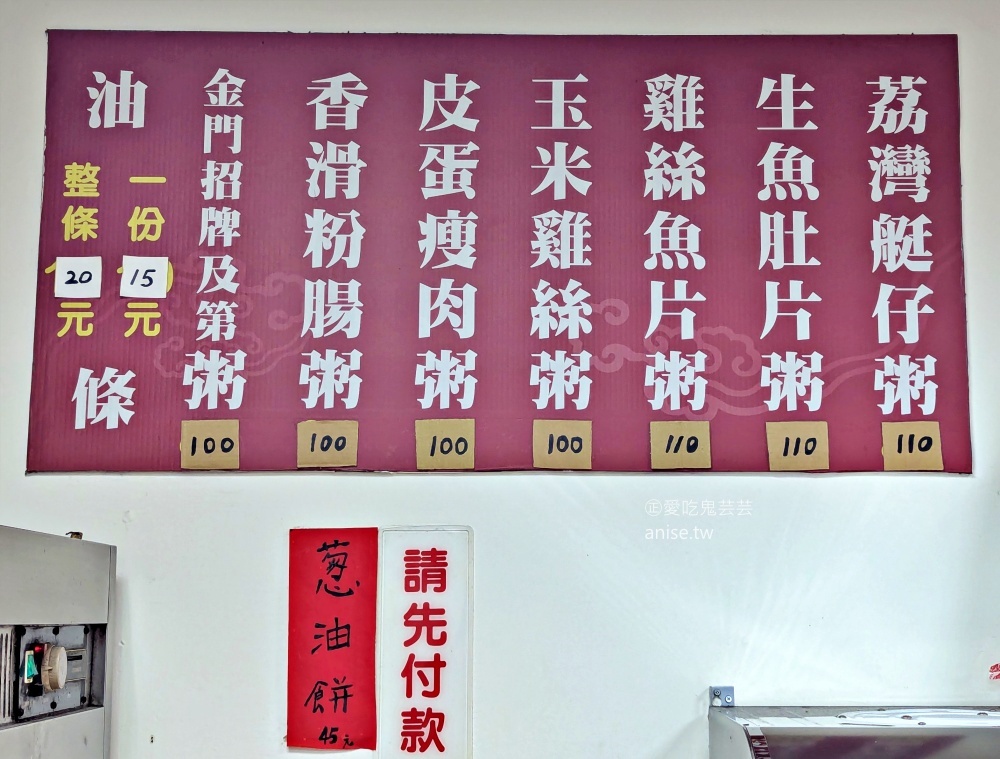 荔灣艇仔粥
110
生魚肚片粥
110
雞絲魚片粥
110
玉米雞絲粥
100
皮蛋瘦肉粥
100
香滑粉腸粥
100
金門招牌及第粥
100
油條
一份15元
整條20元
請先付款
蔥油餅
45元
㊣愛吃鬼芸芸
anise.tw